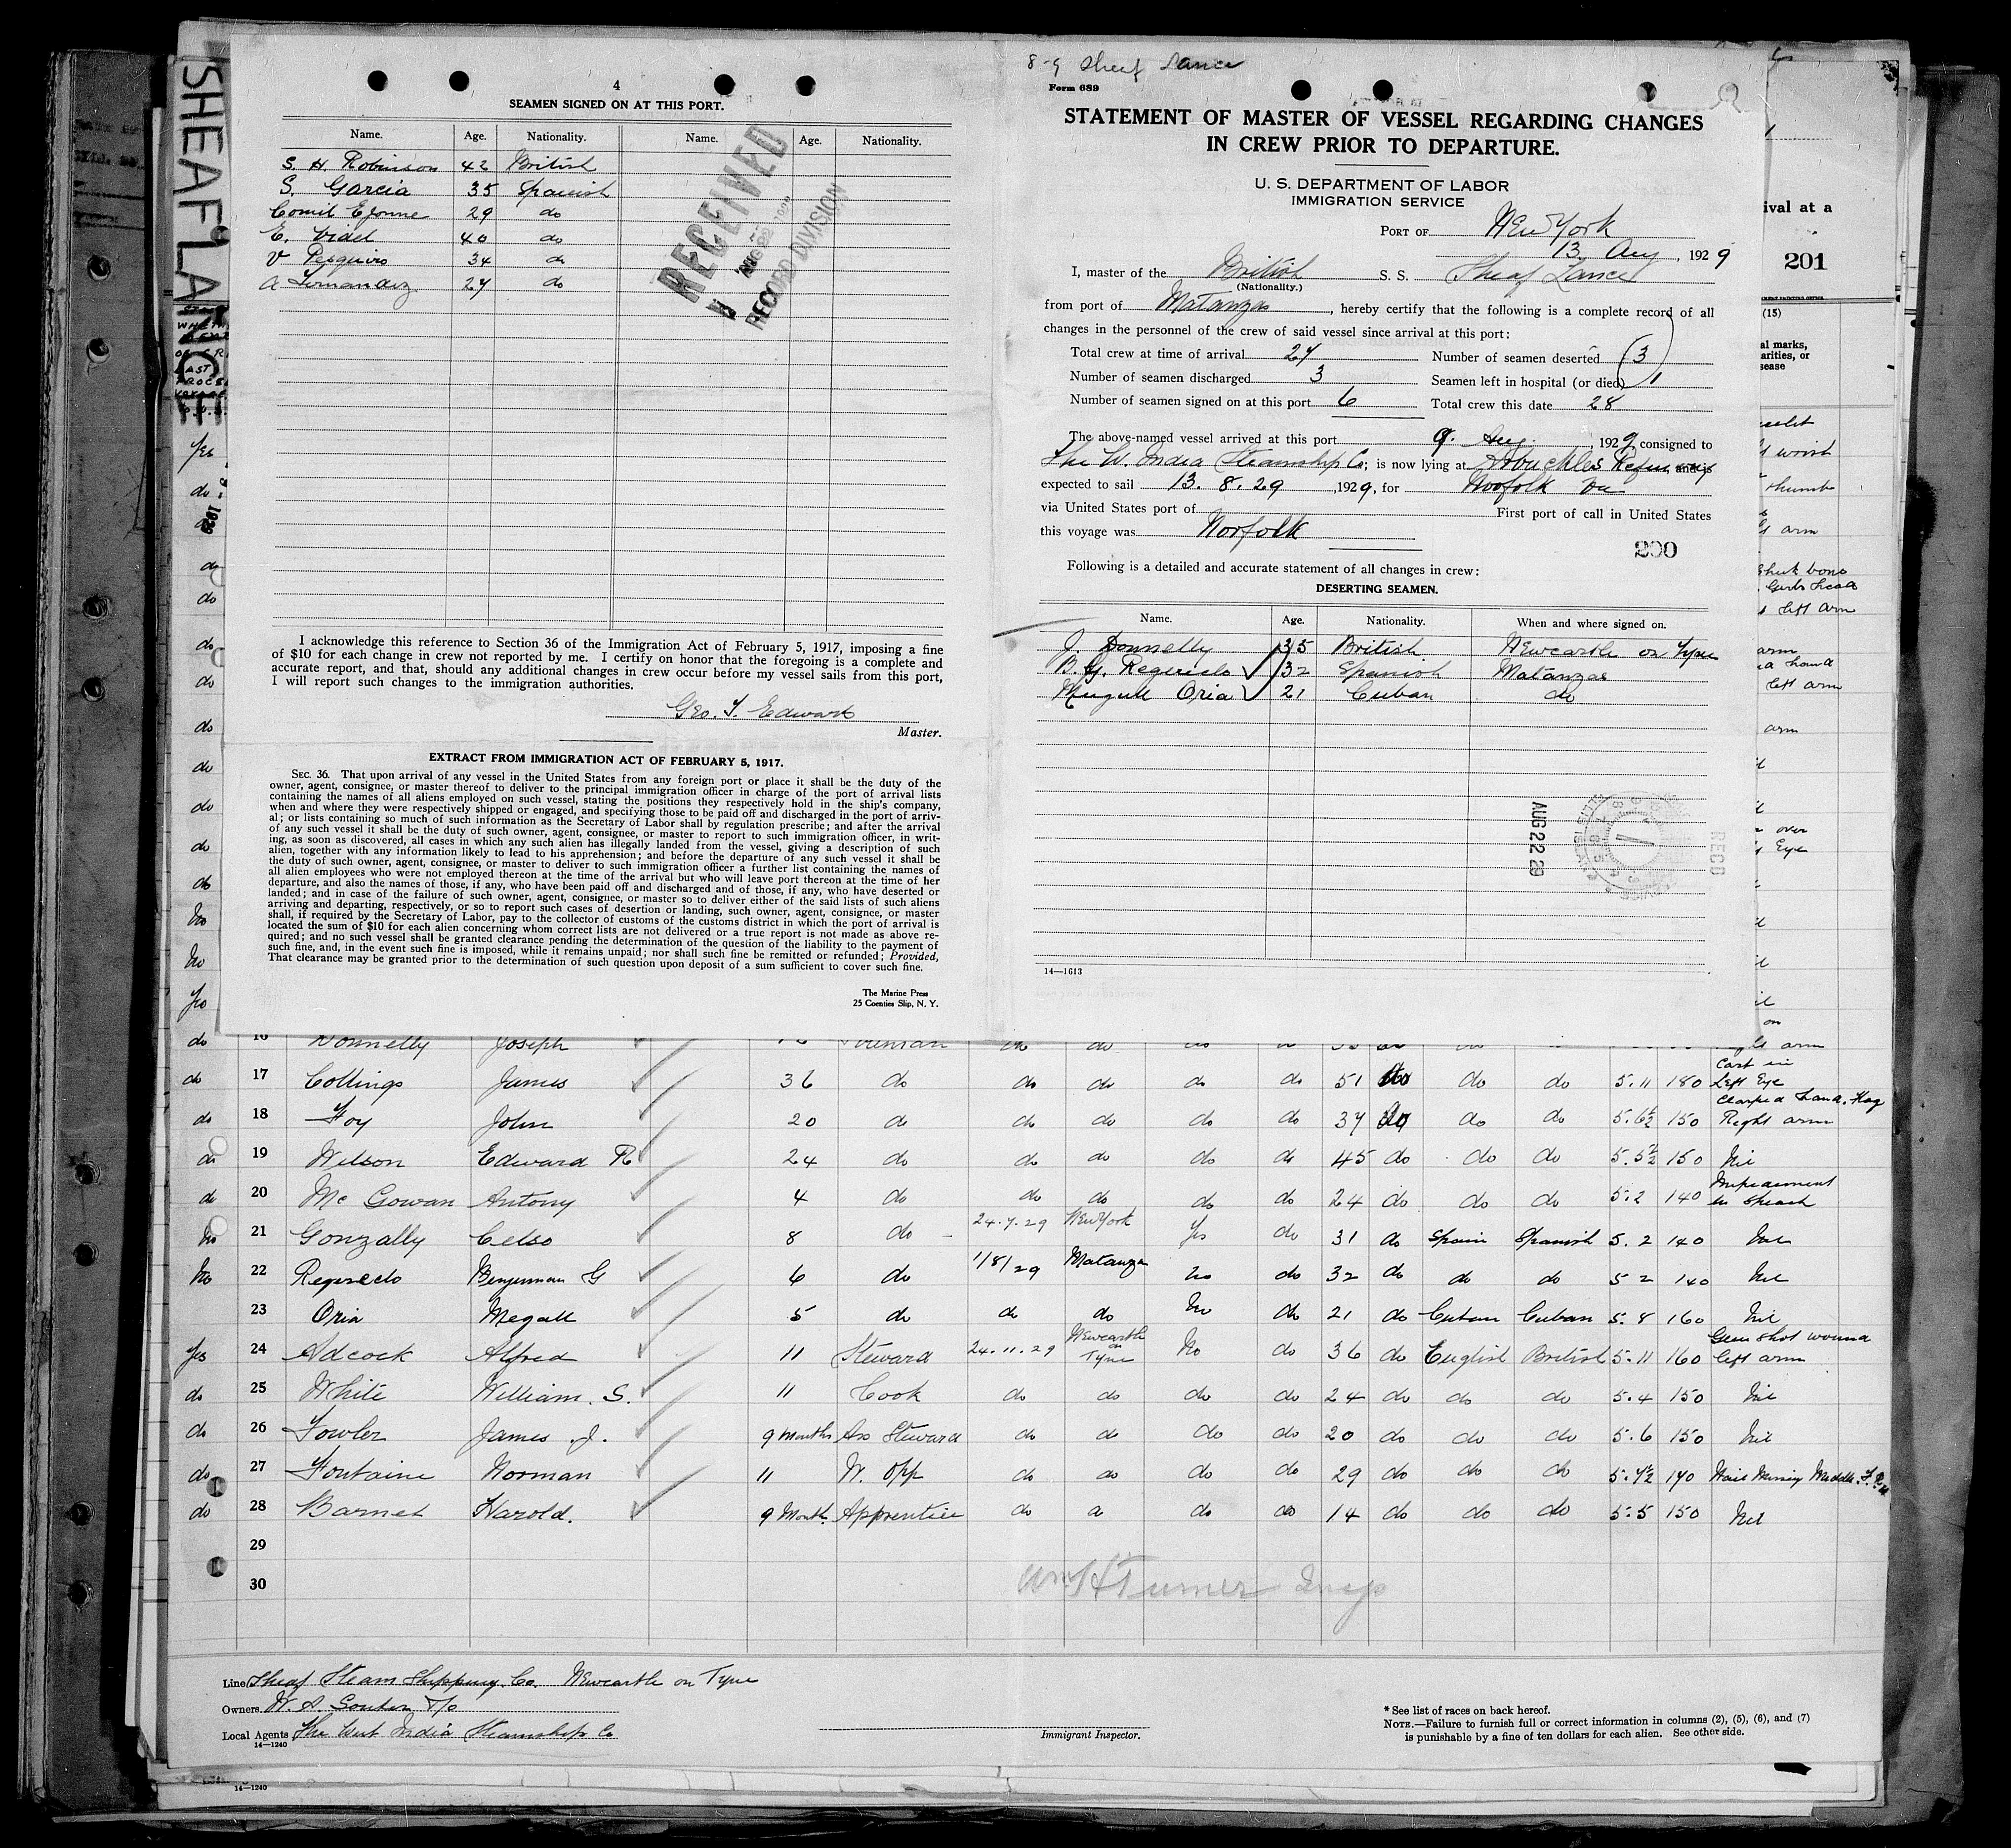 SHEAF LANCE
4
SEAMEN SIGNED ON AT THIS PORT.
Name. Age. Nationality. Name. Age. Nationality.
S. H. Robinson 42 British
S. Garcia 35 Spanish
29 do
E. Videl 40 do
V 34 do
A 27 do
RECEIVED
RECORD DIVISION
I acknowledge this reference to Section 36 of the Immigration Act of February 5, 1917, imposing a fine
of $10 for each change in crew not reported by me. I certify on honor that the foregoing is a complete and
accurate report, and that, should any additional changes in crew occur before my vessel sails from this port,
I will report such changes to the immigration authorities.
Geo. T. Edwards
Master.
EXTRACT FROM IMMIGRATION ACT OF FEBRUARY 5, 1917.
SEC. 36. That upon arrival of any vessel in the United States from any foreign port or place it shall be the duty of the
owner, agent, consignee, or master thereof to deliver to the principal immigration officer in charge of the port of arrival lists
containing the names of all aliens employed on such vessel, stating the positions they respectively hold in the ship's company,
when and where they were respectively shipped or engaged, and specifying those to be paid off and discharged in the port of arriv-
al; or lists containing so much of such information as the Secretary of Labor shall by regulation prescribe; and after the arrival
of any such vessel it shall be the duty of such owner, agent, consignee, or master to report to such immigration officer, in writ-
ing, as soon as discovered, all cases in which any such alien has illegally landed from the vessel, giving a description of such
alien, together with any information likely to lead to his apprehension; and before the departure of any such vessel it shall be
the duty of such owner, agent, consignee, or master to deliver to such immigration officer a further list containing the names of
all alien employees who were not employed thereon at the time of the arrival but who will leave port thereon at the time of her
departure, and also the names of those, if any, who have been paid off and discharged and of those, if any, who have deserted or
landed; and in case of the failure of such owner, agent, consignee, or master so to deliver either of the said lists of such aliens
arriving and departing, respectively, or so to report such cases of desertion or landing, such owner, agent, consignee, or master
shall, if required by the Secretary of Labor, pay to the collector of customs of the customs district in which the port of arrival is
located the sum of $10 for each alien concerning whom correct lists are not delivered or a true report is not made as above re-
quired; and no such vessel shall be granted clearance pending the determination of the question of the liability to the payment of
such fine, and, in the event such fine is imposed, while it remains unpaid; nor shall such fine be remitted or refunded; Provided,
That clearance may be granted prior to the determination of such question upon deposit of a sum sufficient to cover such fine.
The Marine Press
25 Coenties Slip, N. Y.
8-9 Sheaf Lance
Form 689
STATEMENT OF MASTER OF VESSEL REGARDING CHANGES
IN CREW PRIOR TO DEPARTURE.
U. S. DEPARTMENT OF LABOR
IMMIGRATION SERVICE
PORT OF New York
13 Aug, 1929
I, master of the British S. S. Sheaf Lance
(Nationality.)
from port of Matanzas, hereby certify that the following is a complete record of all
changes in the personnel of the crew of said vessel since arrival at this port:
Total crew at time of arrival 27 Number of seamen deserted 3
Number of seamen discharged 3 Seamen left in hospital (or died) 1
Number of seamen signed on at this port 6 Total crew this date 28
The above-named vessel arrived at this port 9. Aug., 1929, consigned to
The W. India Steamship Co; is now lying at Arbuckles and is
expected to sail 13. 8. 29, 1929, for Norfolk Va
via United States port of First port of call in United States
this voyage was Norfolk
200
Following is a detailed and accurate statement of all changes in crew:
DESERTING SEAMEN.
Name. Age. Nationality. When and where signed on.
J. Donnelly 35 British Newcastle on Tyne
B. G. 32 Spanish Matanzas
Oria 21 Cuban do
AUG 22 29
REC'D
14—1613
ival at a
201
(15)
al marks,
arities, or
sease
wrist
thumb
arm
left arm
arm
left arm
arm
over
Eye
do 16 Donnelly Joseph
do 17 Collings James 36 do do do do do 51 do do do 5.11 180 Cast in Left Eye
do 18 Foy John 20 do do do do do 37 do do do 5.6½ 150 Clasped Hand. Flag Right arm
do 19 Wilson Edward R 24 do do do do do 45 do do do 5.5½ 150 Nil
do 20 Mc Gowan Antony 4 do do do do do 24 do do do 5.2 140 Impairment in Speach
No 21 Gonzally Celso 8 do 24.7.29 New York Yes do 31 do Spain Spanish 5.2 140 Nil
No 22 G 6 do 1/8/29 Matanza No do 32 do do do 5 2 140 Nil
23 Oria Megall 5 do do do No do 21 do Cuban Cuban 5.8 160 Nil
Yes 24 Adcock Alfred 11 Steward 24.11.29 Newcastle on Tyne No do 36 do English British 5.11 160 Gun Shot wound left arm
do 25 White William. S. 11 Cook do do do do 24 do do do 5.4 150 Nil
do 26 Fowler James. J. 9 Months Ass Steward do do do do 20 do do do 5.6 150 Nil
do 27 Fontaine Norman 11 W. Opp do do do do 29 do do do 5.7½ 140
do 28 Barnet Harold. 9 Month Apprentice do do do do 14 do do do 5.5 150 Nil
29
30
Wm H Turner Insp
Line Sheaf Steam Shipping. Co. Newcastle on Tyne
Owners W. A. Souter
Local Agents The West India Steamship Co
14—1240
Immigrant Inspector.
* See list of races on back hereof.
NOTE.—Failure to furnish full or correct information in columns (2), (5), (6), and (7)
is punishable by a fine of ten dollars for each alien. See other side.
14—1240